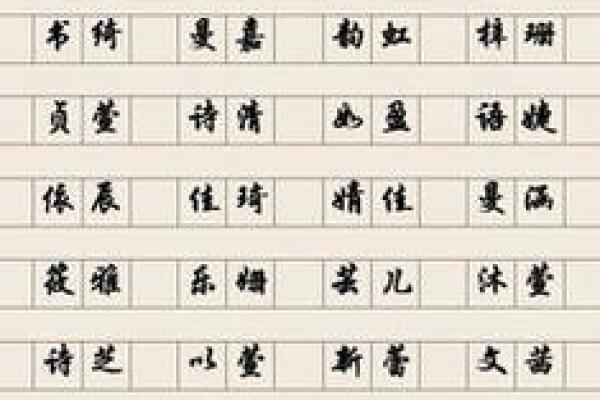 书绮 曼嘉 韵虹 梓珊
贞萱 诗清 如盈 语婕
依辰 佳琦 婧佳 曼涵
筱雅 乐姗 芸儿 沐萱
诗芝 以萱 新蕾 文茜